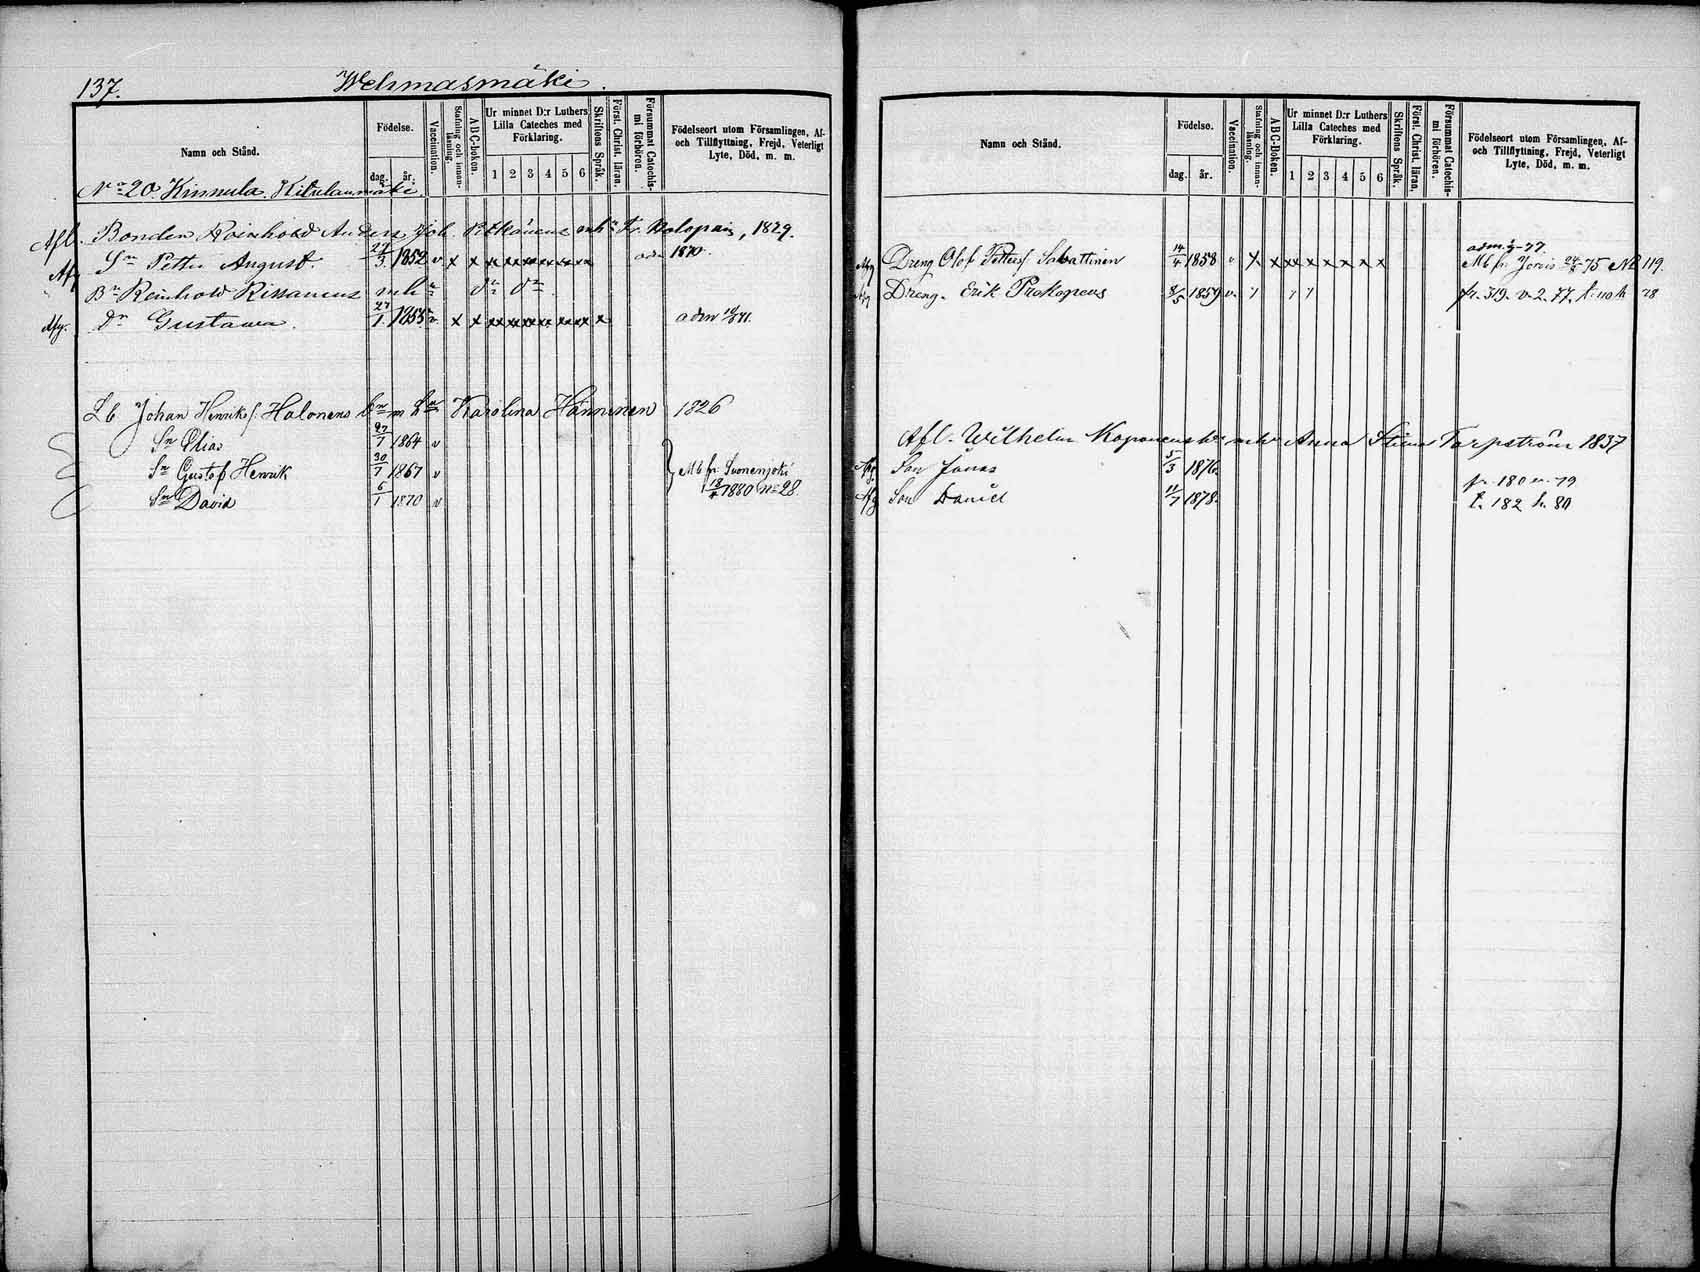 137. Wehmasmäki.
Namn och Stånd.
Födelse.
dag. år.
Vaccination.
Stafning och innanläsning.
ABC-boken.
Ur minnet D:r Luthers Lilla Cateches med Förklaring.
1 2 3 4 5 6
Skriftens Språk.
Först. Christ. läran.
Försummat Catechismi förhören.
Födelseort utom Församlingen, Af- och Tillflyttning, Frejd, Veterligt Lyte, Död, m. m.
No 20. Kinnula.
Afl. Bonden Reinhold Anders Joh. Pitkänens enk. 1829.
Afg Sn Petter August. 27/3 1852 v x x 1870.
Bn Reinhold Rissanens mhn dn dn
Afg. dn Gustawa. 27/1 1855 v x x x
Johan Henriks. Halonens Karolina Hänninen 1826
Sn Elias 27/7 1864 v
Sn Gustaf Henrik 30/7 1867 v Mb fr. Suonenjoki
Sn David 6/1 1870 v 1880 No 28.
Namn och Stånd.
Födelse.
dag. år.
Vaccination.
Stafning och innanläsning.
ABC-boken.
Ur minnet D:r Luthers Lilla Cateches med Förklaring.
1 2 3 4 5 6
Skriftens Språk.
Först. Christ. läran.
Försummat Catechismi förhören.
Födelseort utom Församlingen, Af- och Tillflyttning, Frejd, Veterligt Lyte, Död, m. m.
Afg Dreng Olof Petters. Sabattinen 14/4 1858 v x x x x x x x x Mb fr. Jorois 75 No 119.
Afg Dreng. Erik Prokopeus 8/5 1859 v. fr. 319. v. 2. 77. t. 110 h 78
Afl. Wilhelm Koponens mhn Anna Stina Tarpström 1837
Afg Son Jonas 5/3 1876.
Afg Son Daniel 11/7 1878. fr. 180 v. 79
t. 182 h. 80